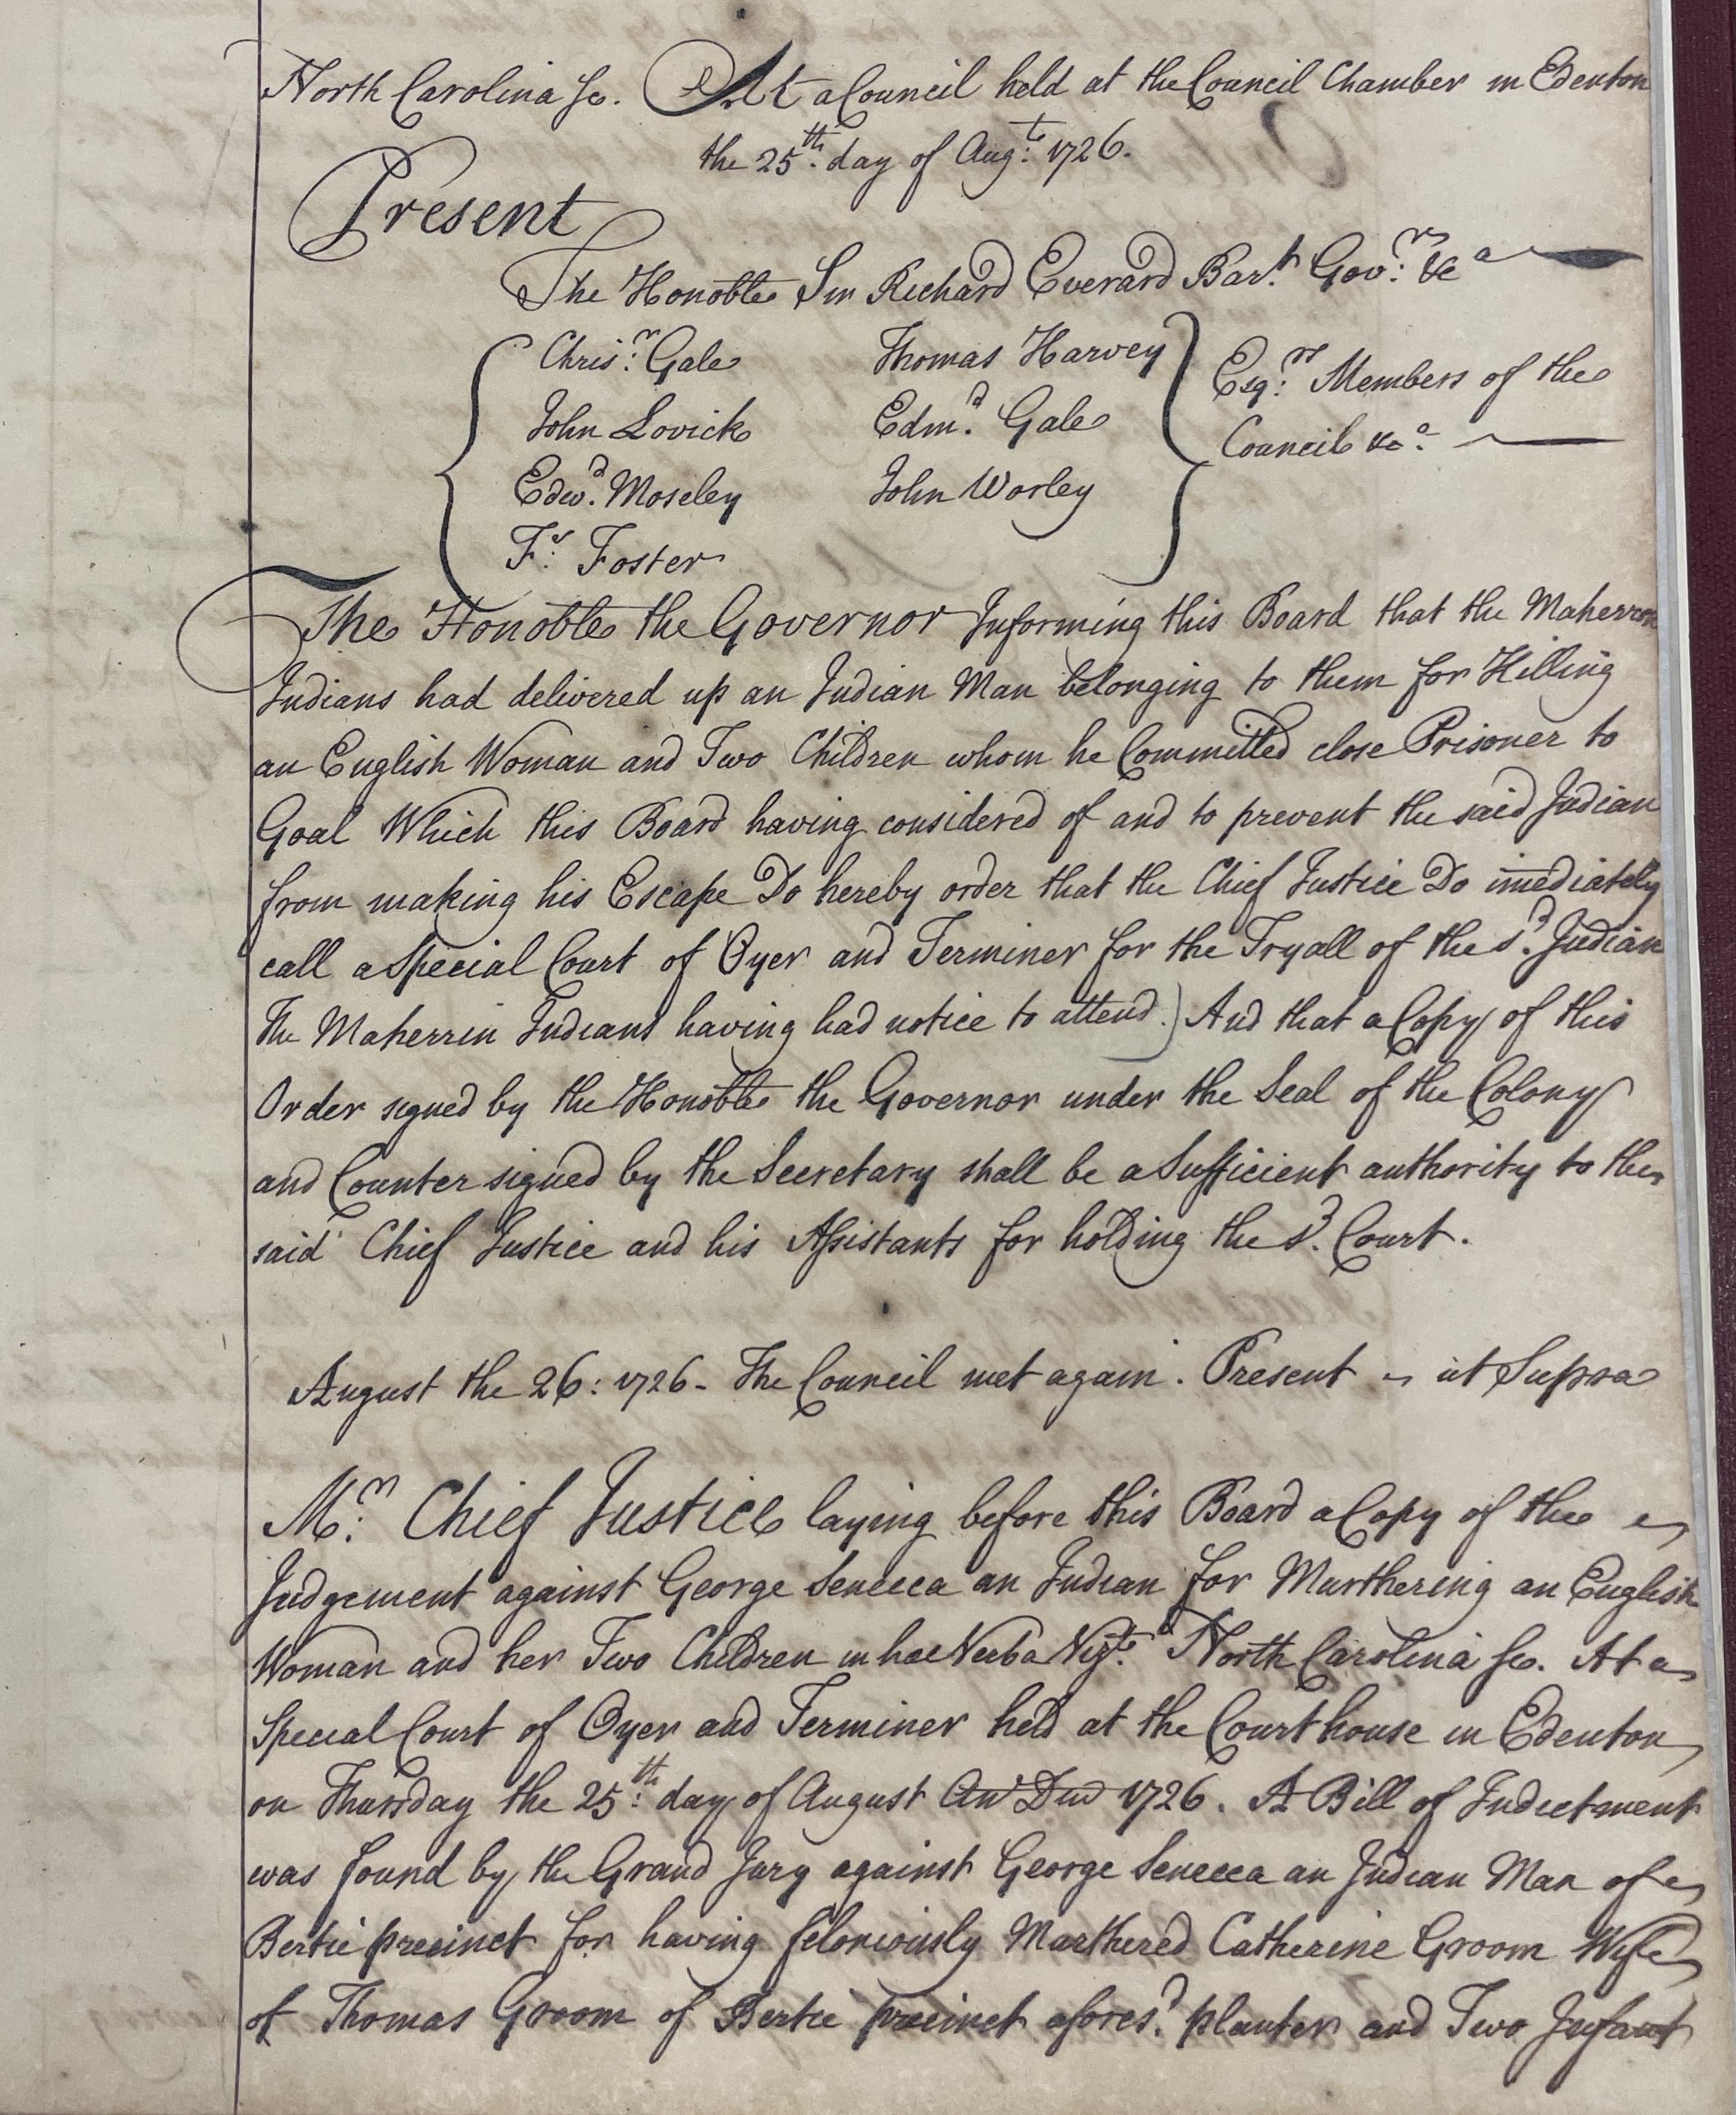 North Carolina Sc. At a Council held at the Council Chamber in Edenton
the 25th. day of Augt: 1726.
Present
The Honoble Sir Richard Everard Bart. Govr: &ca
Chrisr: Gale Thomas Harvey
John Lovick Edmd. Gale
Edwd. Moseley John Worley
Fr: Foster
Esqrs: Members of the
Council &ca.
The Honoble the Governor Informing this Board that the Maherron
Indians had delivered up an Indian Man belonging to them for Killing
an English Woman and Two Children whom he Committed close Prisoner to
Goal Which this Board having considered of and to prevent the said Indian
from making his Escape Do hereby order that the Chief Justice Do imediately
call a Special Court of Oyer and Terminer for the Tryall of the sd. Indian
The Maherrin Indians having had notice to attend.) And that a Copy of this
Order signed by the Honoble the Governor under the Seal of the Colony
and Counter signed by the Secretary shall be a Sufficient authority to the
said Chief Justice and his Assistants for holding the sd. Court.
August the 26: 1726 - The Council met again. Present ut Supra
Mr: Chief Justice laying before this Board a Copy of the
Judgement against George Senecca an Indian for Murthering an English
Woman and her Two Children in hac Verba Vizt. North Carolina Sc. At a
Special Court of Oyer and Terminer held at the Courthouse in Edenton
on Thursday the 25th: day of August Ano Dno 1726. A Bill of Indictment
was found by the Grand Jury against George Senecca an Indian Man of
Bertie precinct for having feloniously Murthered Catherine Groom Wife
of Thomas Groom of Bertie precinct aforesd. planter and Two Infant